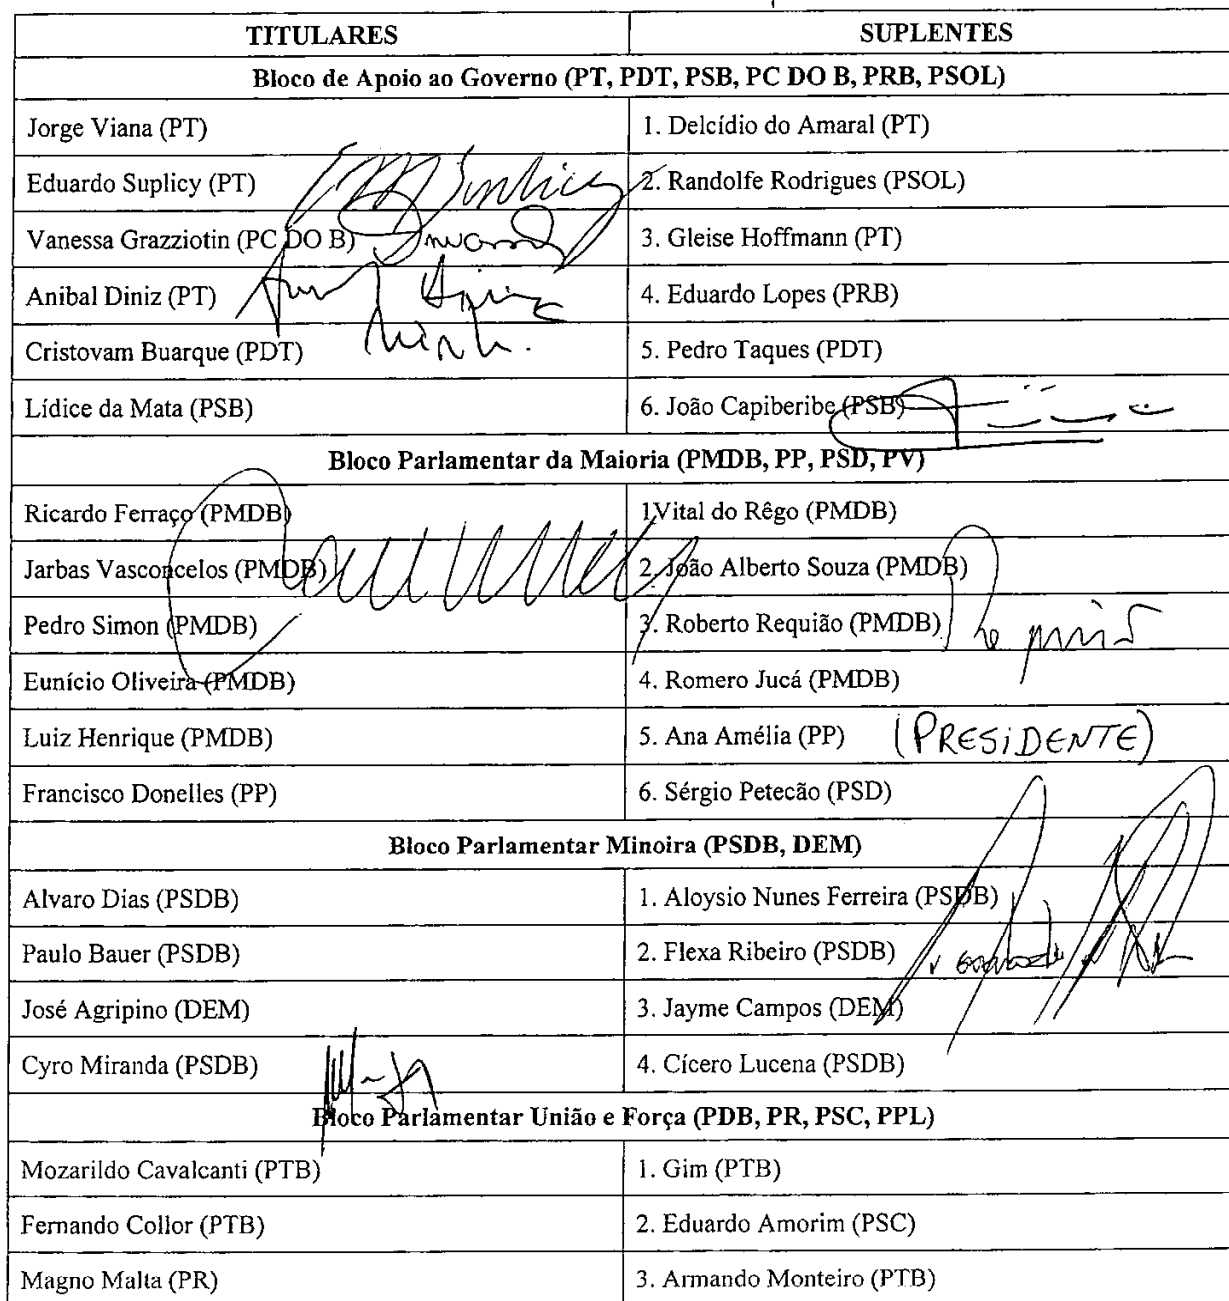 TITULARES SUPLENTES
Bloco de Apoio ao Governo (PT, PDT, PSB, PC DO B, PRB, PSOL)
Jorge Viana (PT) 1. Delcídio do Amaral (PT)
Eduardo Suplicy (PT) Suplicy 2. Randolfe Rodrigues (PSOL)
Vanessa Grazziotin (PC DO B) 3. Gleise Hoffmann (PT)
Anibal Diniz (PT) 4. Eduardo Lopes (PRB)
Cristovam Buarque (PDT) 5. Pedro Taques (PDT)
Lídice da Mata (PSB) 6. João Capiberibe (PSB)
Bloco Parlamentar da Maioria (PMDB, PP, PSD, PV)
Ricardo Ferraço (PMDB) 1Vital do Rêgo (PMDB)
Jarbas Vasconcelos (PMDB) 2. João Alberto Souza (PMDB)
Pedro Simon (PMDB) 3. Roberto Requião (PMDB)
Eunício Oliveira (PMDB) 4. Romero Jucá (PMDB)
Luiz Henrique (PMDB) 5. Ana Amélia (PP) (PRESiDENTE)
Francisco Donelles (PP) 6. Sérgio Petecão (PSD)
Bloco Parlamentar Minoira (PSDB, DEM)
Alvaro Dias (PSDB) 1. Aloysio Nunes Ferreira (PSDB)
Paulo Bauer (PSDB) 2. Flexa Ribeiro (PSDB)
José Agripino (DEM) 3. Jayme Campos (DEM)
Cyro Miranda (PSDB) 4. Cícero Lucena (PSDB)
Bloco Parlamentar União e Força (PDB, PR, PSC, PPL)
Mozarildo Cavalcanti (PTB) 1. Gim (PTB)
Fernando Collor (PTB) 2. Eduardo Amorim (PSC)
Magno Malta (PR) 3. Armando Monteiro (PTB)